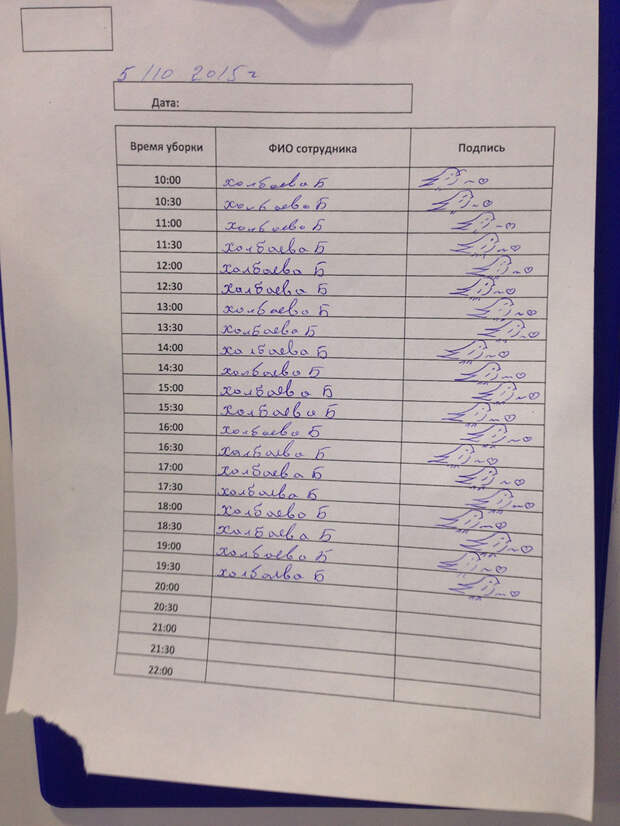 5/10 2015г
Дата:
Время уборки ФИО сотрудника Подпись
10:00 Холбаева Б
10:30 Холбаева Б
11:00 Холбаева Б
11:30 Холбаева Б
12:00 Холбаева Б
12:30 Холбаева Б
13:00 Холбаева Б
13:30 Холбаева Б
14:00 Холбаева Б
14:30 Холбаева Б
15:00 Холбаева Б
15:30 Холбаева Б
16:00 Холбаева Б
16:30 Холбаева Б
17:00 Холбаева Б
17:30 Холбаева Б
18:00 Холбаева Б
18:30 Холбаева Б
19:00 Холбаева Б
19:30 Холбаева Б
20:00
20:30
21:00
21:30
22:00